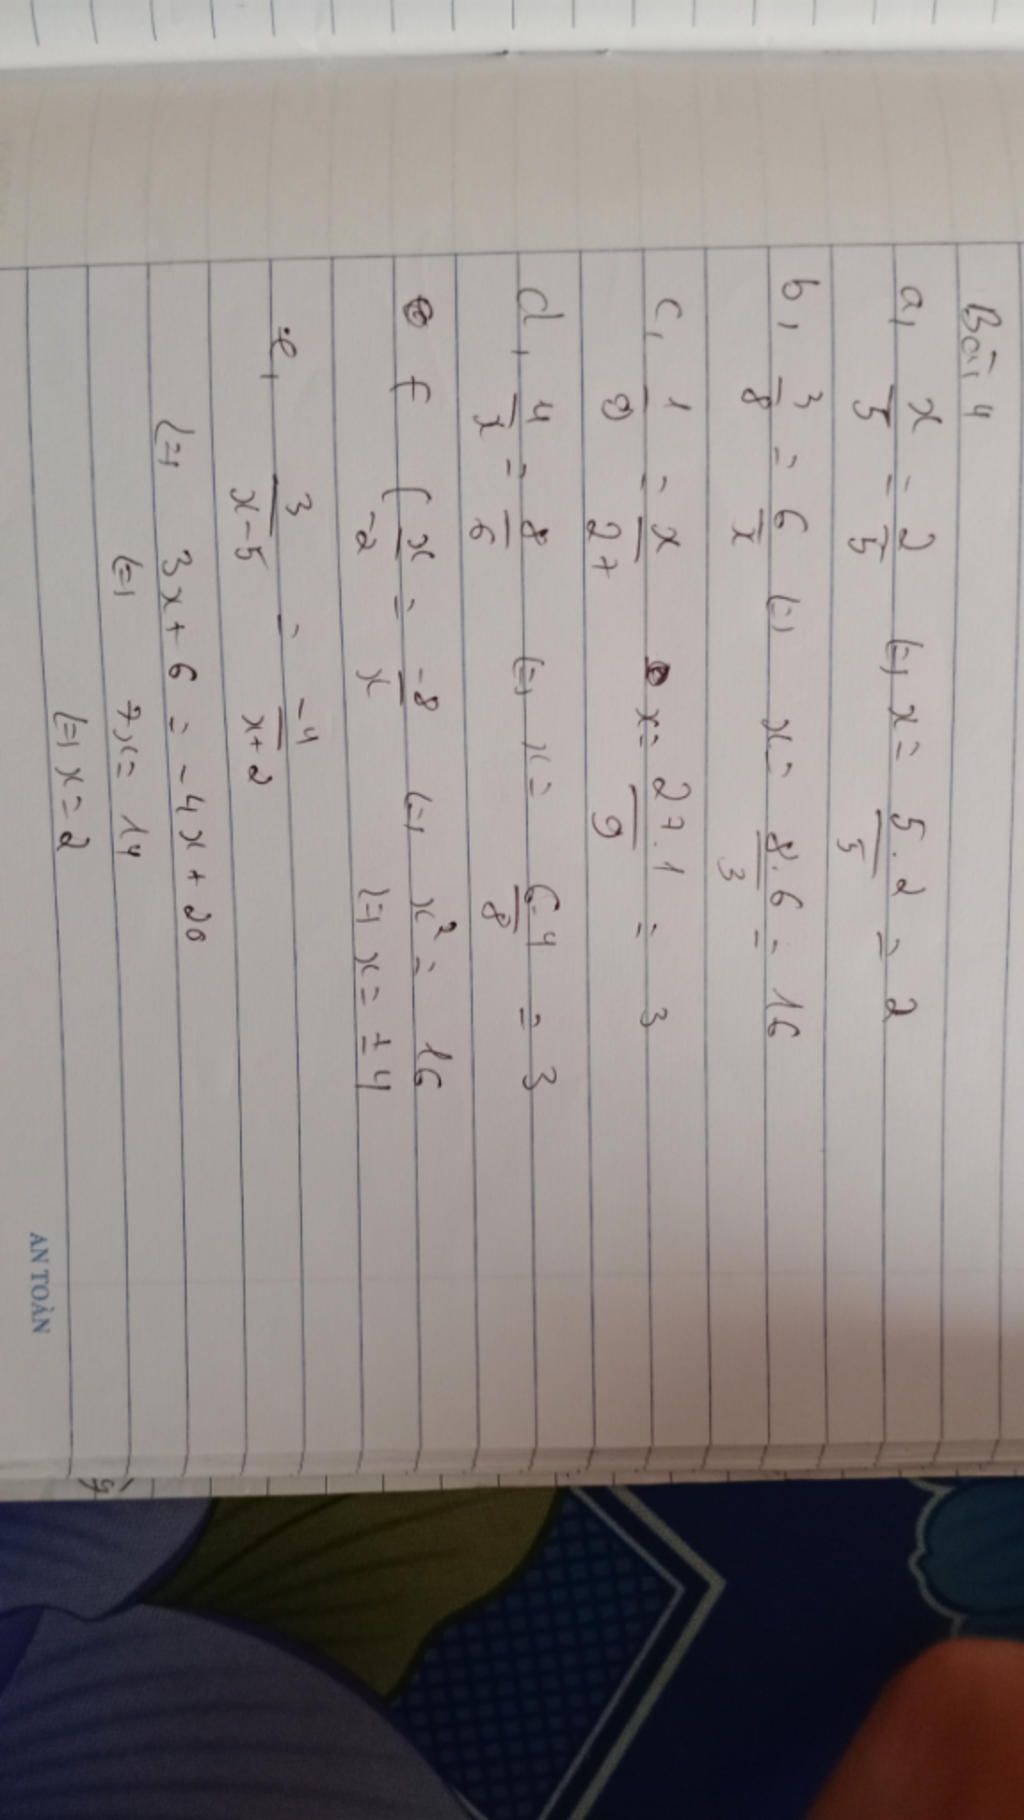 Bài 4
a, x/5 = 2/5 (=) x = 5.2/5 = 2
b, 3/8 = 6/x (=) x = 8.6/3 = 16
c, 1/9 = x/27 x = 27.1/9 = 3
d, 4/x = 8/6 (=) x = 6.4/8 = 3
f (x/-2 = -8/x (=) x² = 16
(=) x = ±4
e, 3/x-5 = -4/x+2
(=) 3x + 6 = -4x + 20
(=) 7x = 14
(=) x = 2
AN TOÀN